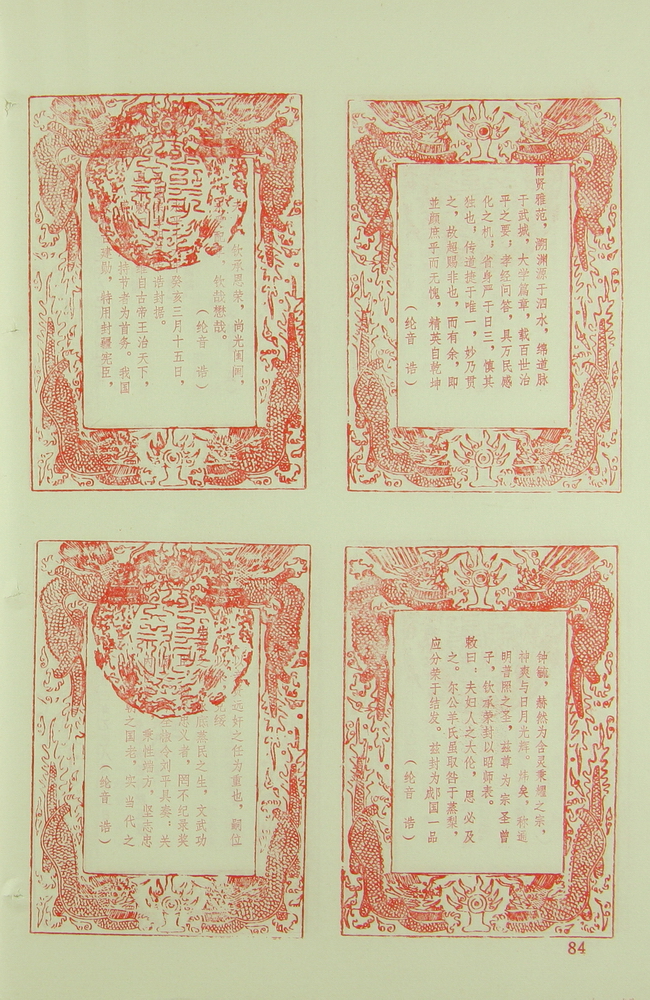 前贤雅范，溯渊源于泗水，绵道脉
于武城，大学篇章，载百世治
平之要；孝经问答，具万民感
化之机；省身严于日三，慎其
独也，传道捷于唯一，妙乃贯
之，故超赐非也，而有余，即
并颜庶乎而无愧，精英自乾坤
（纶音 诰）
钦承恩荣，尚光闺阃，
钦哉懋哉。
（纶音 诰）
癸亥三月十五日，
诰封据。
自古帝王治天下，
持节者为首务。我国
建勋，特用封疆宪臣，
钟毓，赫然为含灵秉耀之宗，
神爽与日月光辉。炜矣，称遥
明普照之圣，兹尊为宗圣曾
子，钦承荣封以昭师表。
敕曰：夫妇人之大伦，恩必及
之。尔公羊氏虽取咎于蒸梨，
应分荣于结发。兹封为郕国一品
（纶音 诰）
远好之任为重也，嗣位
绥
蒸民之生，文武功
义者，罔不纪录奖
令刘平共奏：关
秉性端方，坚志忠
之国老，实当代之
（纶音 诰）
84